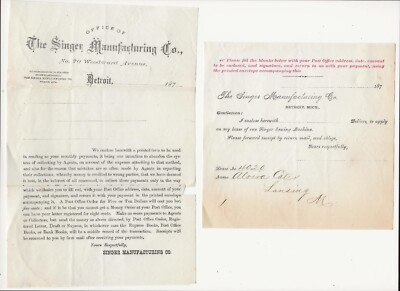 OFFICE OF
The Singer Manufacturing Co.,
No. 90 Woodward Avenue,
Detroit, 187
We enclose herewith a printed form to be used
in sending us your monthly payments, it being our intention to abandon the sys-
tem of collecting by Agents, on account of the expense attending to that method,
and also for the reason that mistakes are so often made by Agents in reporting
their collections, whereby money is credited to wrong parties, that we have deemed
it for the interest of all concerned to collect these payments only in the way
which
with your Post Office Address, date, amount
of your payment, and signature, and return it with the payment in the printed envelope
accompanying it. A Post Office Order for Five or Ten Dollars will cost you but
five cents; and if it be that you cannot get a Money Order at your Post Office, you
can have your letter registered for eight cents. Make no more payments to Agents
or Collectors, but send direct to us, by Post Office Order, Registered
Letter, Draft or Express, in whichever way you send, the Express Books, Post Office
Books, or Bank Books, will be a sure record of the transaction. Receipts will
be returned to you by first mail after receiving your payments.
Yours Respectfully,
SINGER MANUFACTURING CO.
Please fill the blanks below with your Post Office address, date, amount
to be enclosed, and signature, and return to us with your payment, using
the printed envelope accompanying this.
187
The Singer Manufacturing Co.
DETROIT, MICH.
Gentlemen:
I enclose herewith Dollars, to apply
on my lease of one Singer Sewing Machine.
Please forward receipt by return mail, and oblige,
Yours respectfully,
Lease No.
Name
Lansing
M